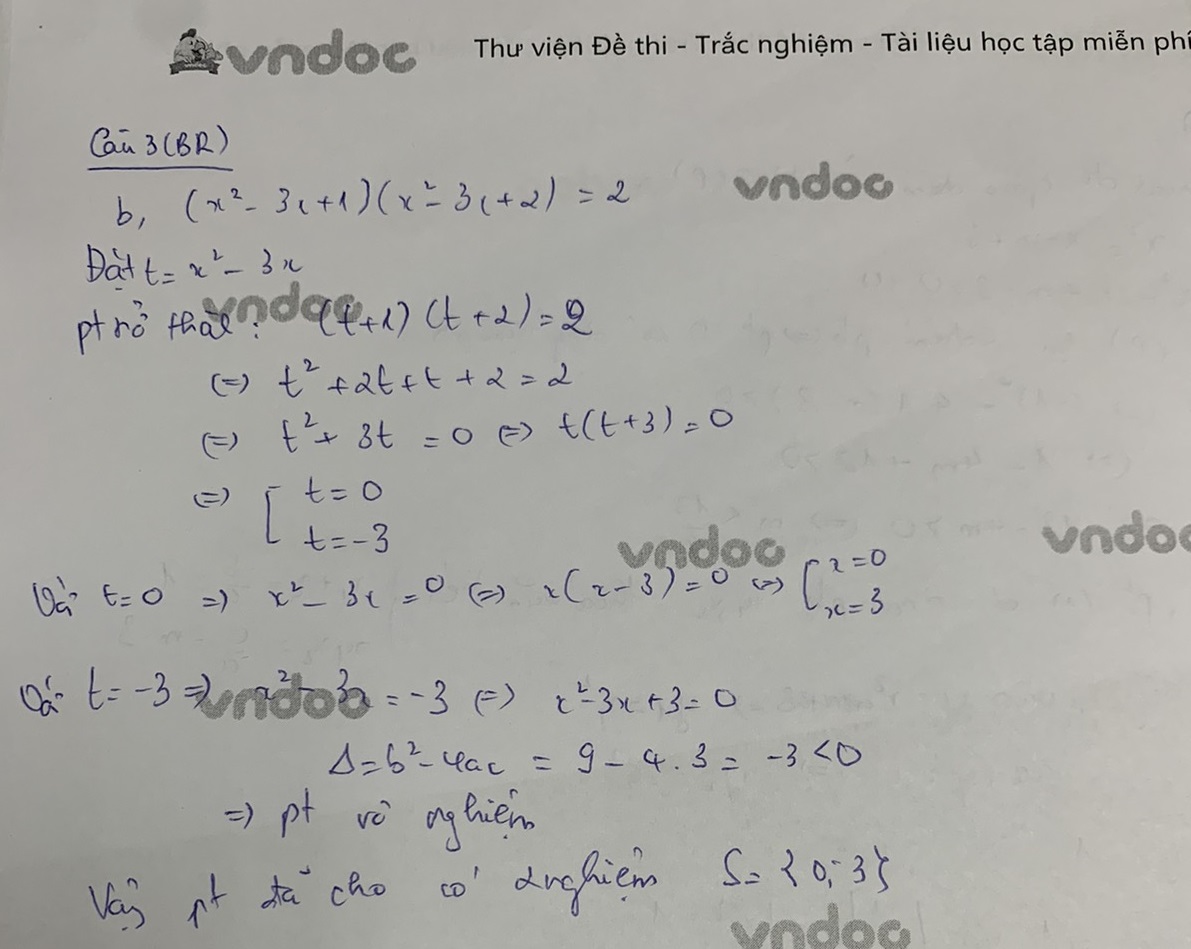 vndoc Thư viện Đề thi - Trắc nghiệm - Tài liệu học tập miễn phí
Câu 3 (BR)
vndoc
b, (x² - 3x + 1)(x² - 3x + 2) = 2
Đặt t = x² - 3x
vndoc
pt trở thành: (t+1)(t+2) = 2
(=) t² + 2t + t + 2 = 2
(=) t² + 3t = 0 (=) t(t+3) = 0
(=) [ t = 0
t = -3
vndoc vndoc
Với t = 0 => x² - 3x = 0 (=) x(x-3) = 0 (=) [ x = 0
x = 3
Với t = -3 => x² - 3x = -3 (=) x² - 3x + 3 = 0
vndoc
Δ = b² - 4ac = 9 - 4.3 = -3 < 0
=> pt vô nghiệm
Vậy pt đã cho có 2 nghiệm S = {0; 3}
vndoc